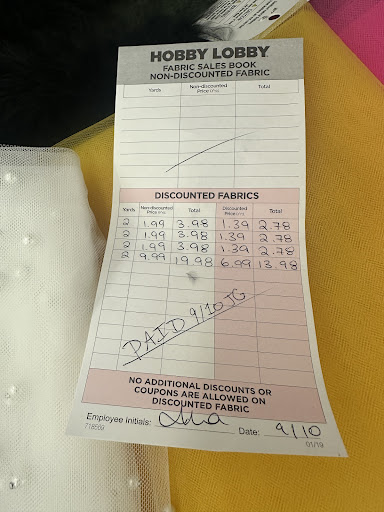 HOBBY LOBBY
FABRIC SALES BOOK
NON-DISCOUNTED FABRIC
Yards Non-discounted Price (Yd) Total
DISCOUNTED FABRICS
Yards Non-discounted Price (Yd) Total Discounted Price (Yd) Total
2 1.99 3.98 1.39 2.78
2 1.99 3.98 1.39 2.78
2 1.99 3.98 1.39 2.78
2 9.99 19.98 6.99 13.98
PAID 9/10 JG
NO ADDITIONAL DISCOUNTS OR
COUPONS ARE ALLOWED ON
DISCOUNTED FABRIC
Employee Initials: Date: 9/10
718559 01/19